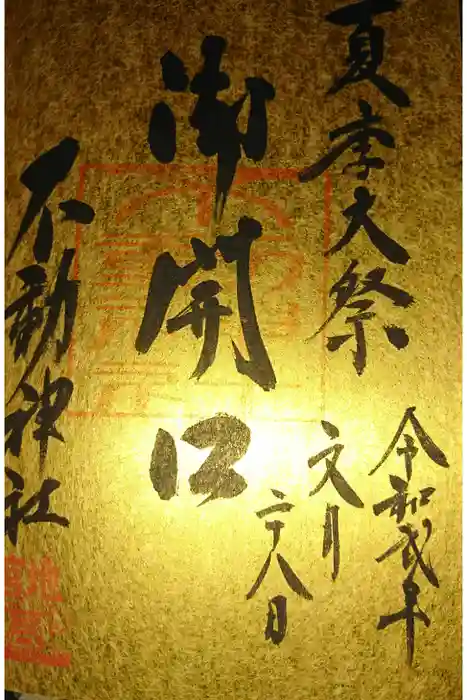 夏季大祭
令和弐年
文月
二十八日
御開口
不動神社